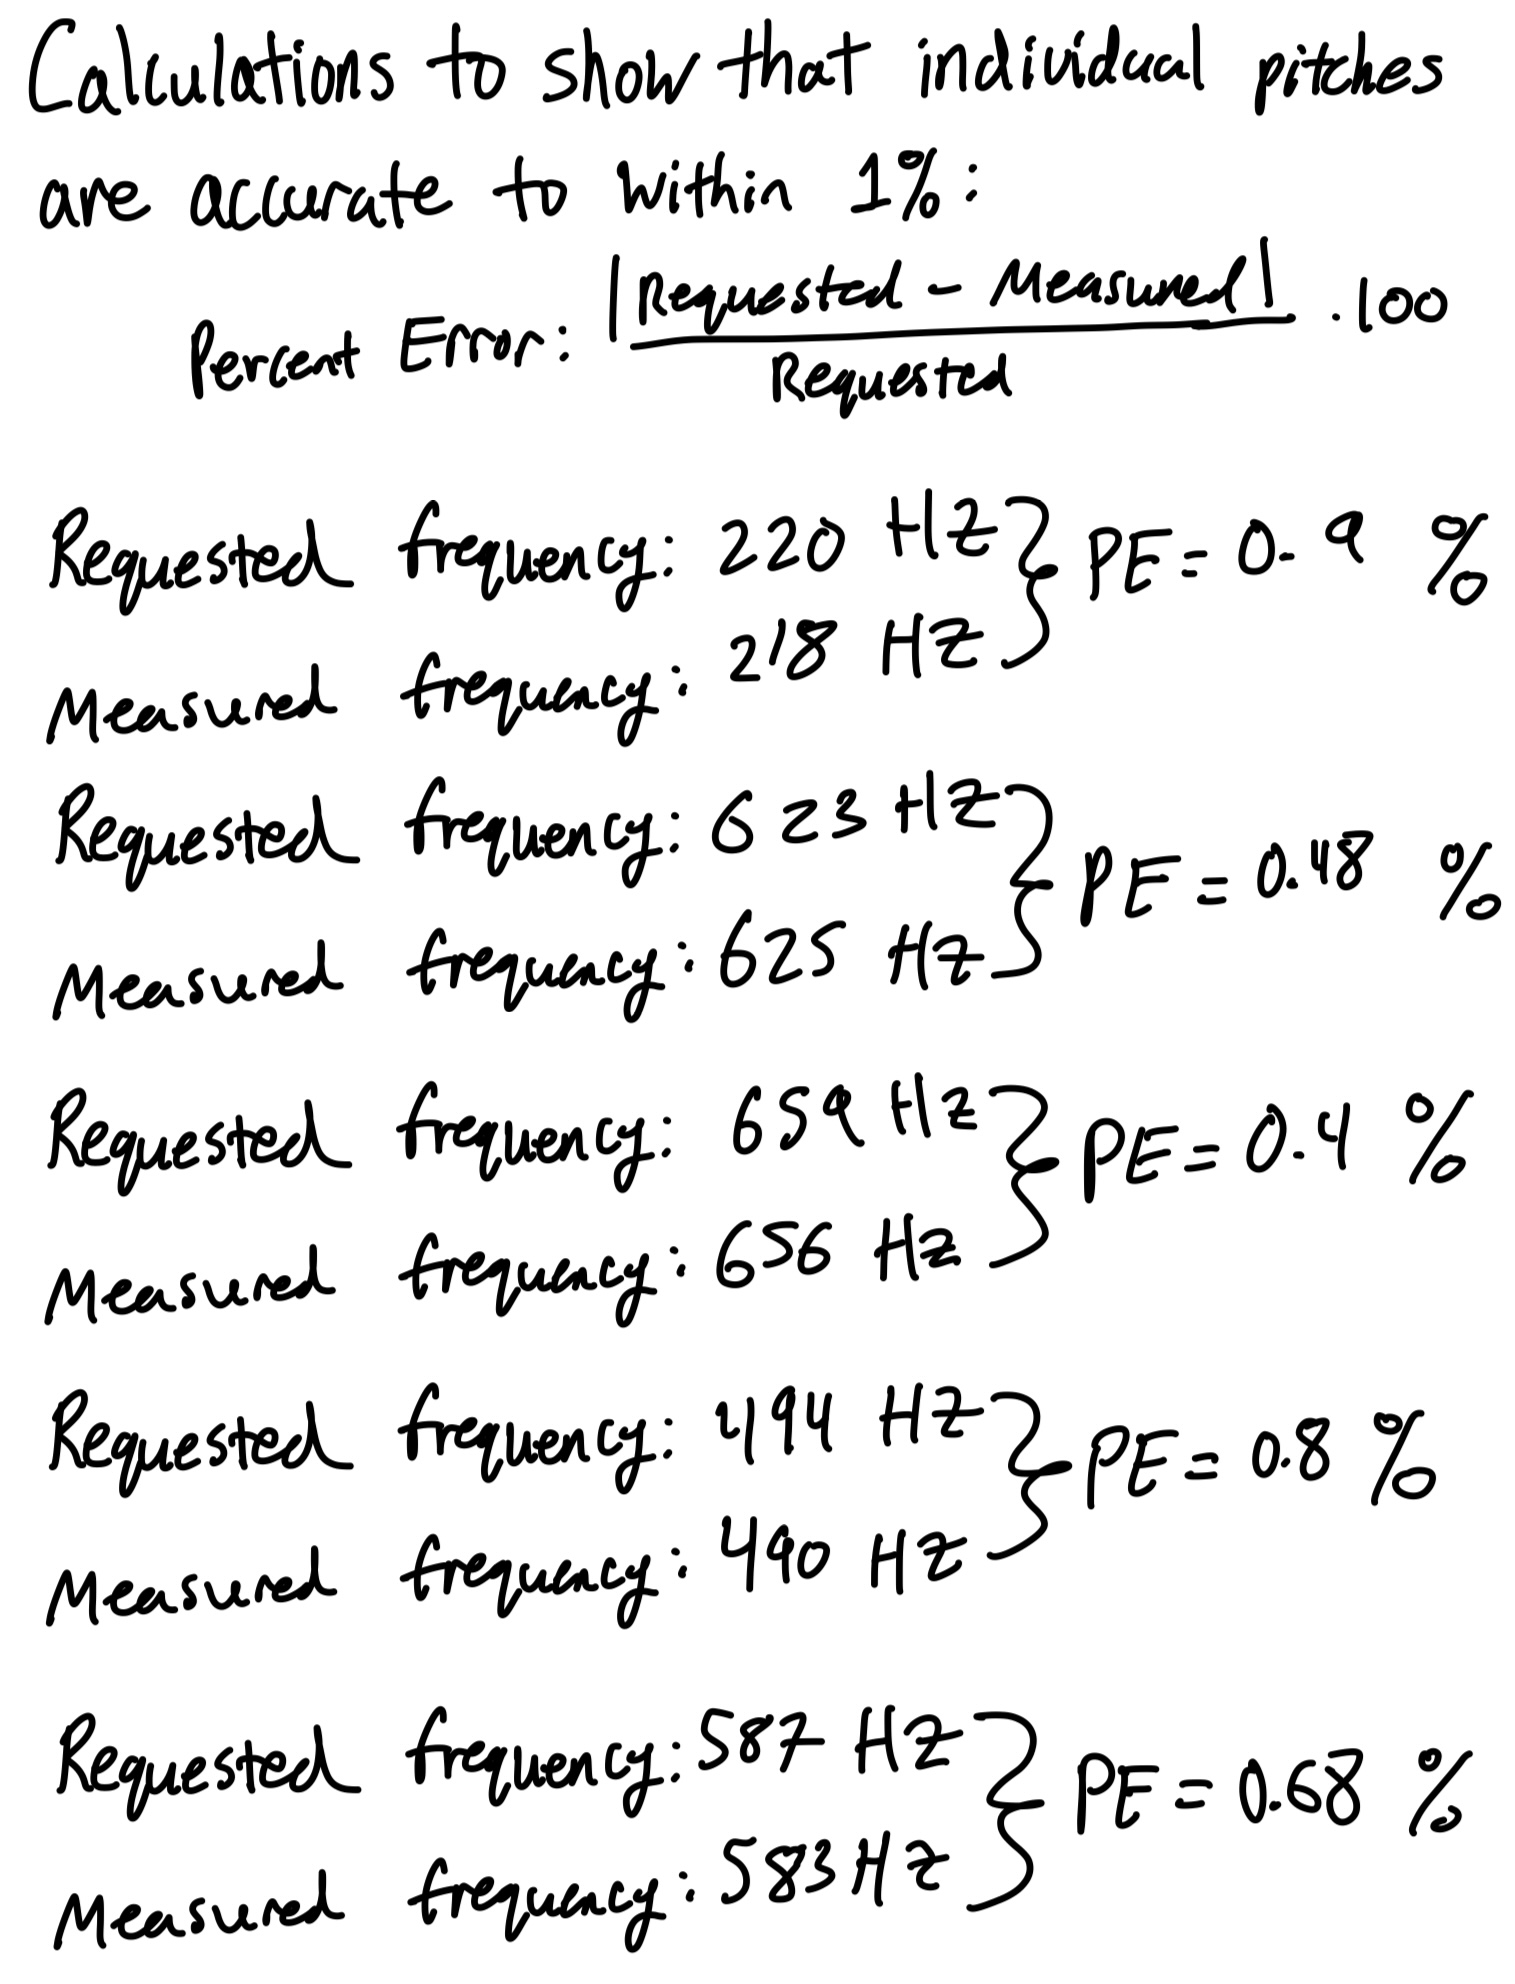 Calculations to show that individual pitches
are accurate to within 1%:
Percent Error: |Requested - Measured| / Requested · 100
Requested frequency: 220 Hz } PE = 0.9 %
Measured frequency: 218 Hz
Requested frequency: 623 Hz } PE = 0.48 %
Measured frequency: 625 Hz
Requested frequency: 659 Hz } PE = 0.4 %
Measured frequency: 656 Hz
Requested frequency: 494 Hz } PE = 0.8 %
Measured frequency: 490 Hz
Requested frequency: 587 Hz } PE = 0.68 %
Measured frequency: 583 Hz